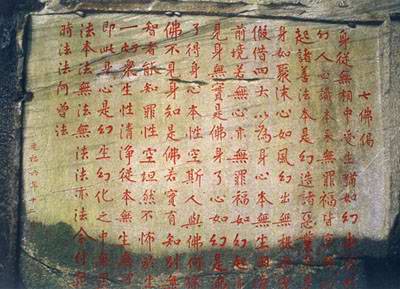 七佛偈
身從無相中受生猶如幻
幻人心識本來無罪福皆
起諸善法本是幻造諸惡業
身如聚沫心如風幻出無根
假借四大以為身心本無生因
前境若無心亦無罪福如幻起
見身無實是佛身了心如幻是
了得身心本性空斯人與佛何
佛不見身知是佛若實有知別無
智者能知罪性空坦然不怖於生
一切衆生性清淨從本無生無
即此身心是幻生幻化之中無
法本法無法無法法亦法今付
時法法何曾法
六年十